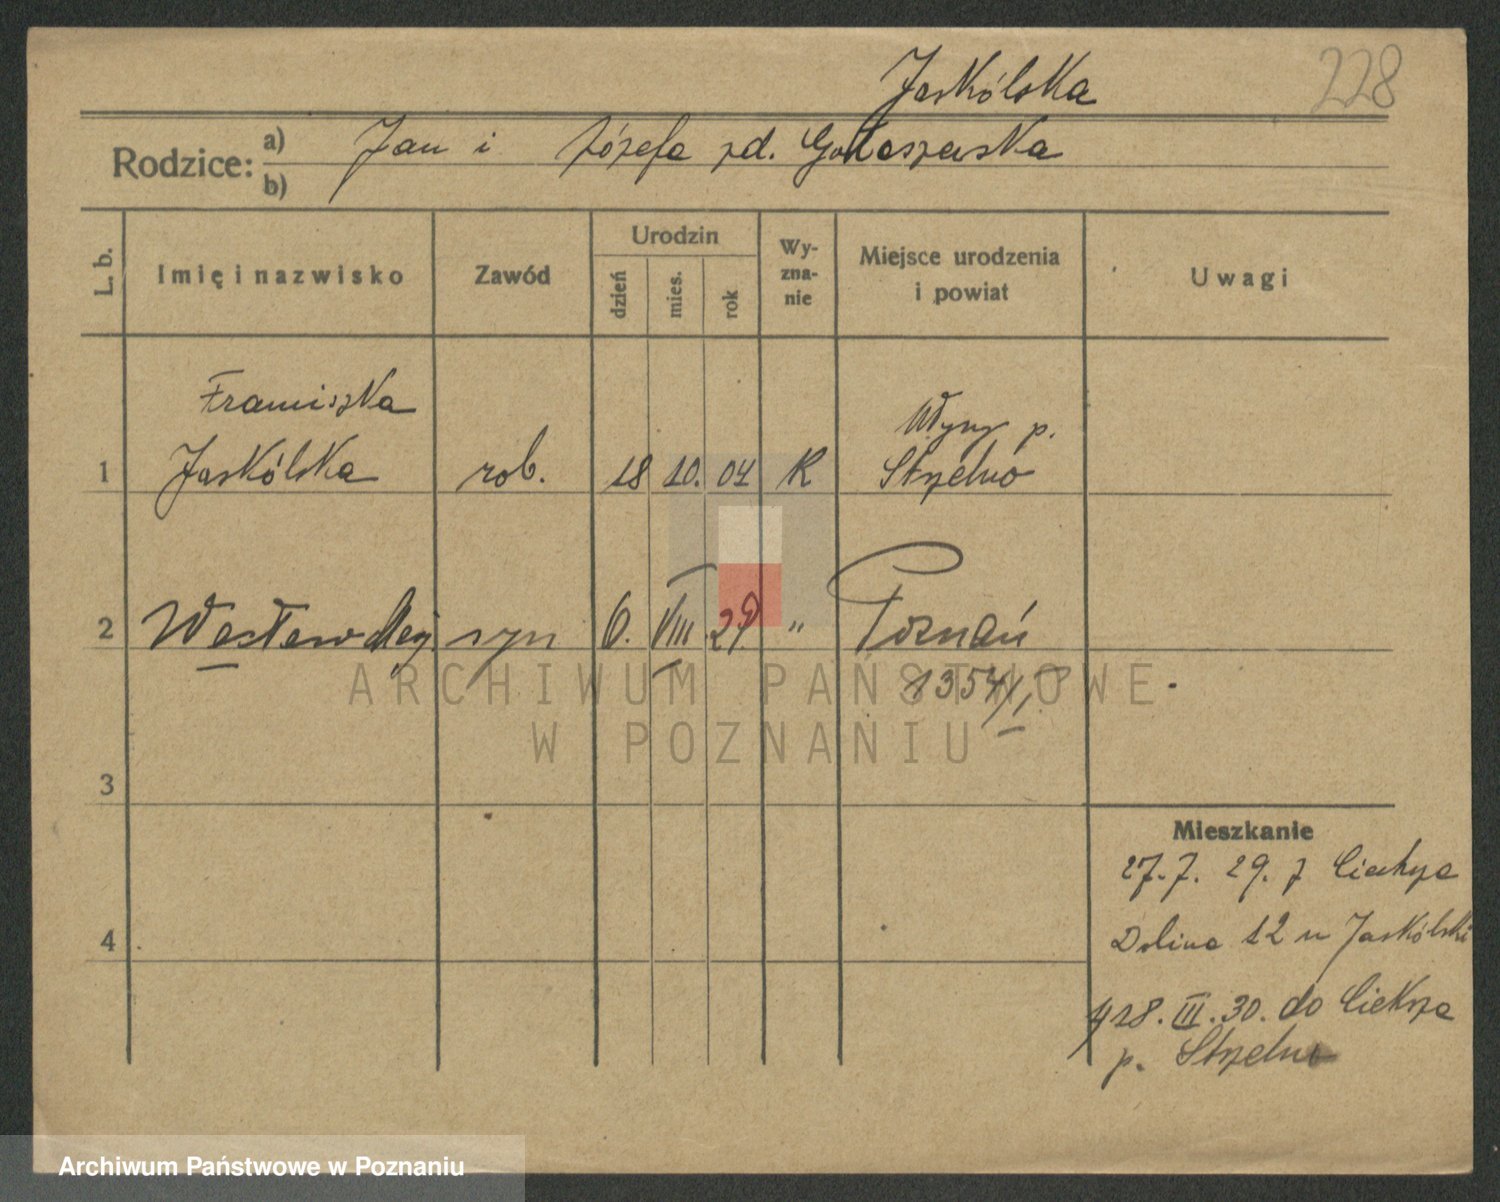 228
Jaskólska
Rodzice: a) Jan i Józefa zd. Gołaszewska
b)
L. b. Imię i nazwisko Zawód Urodzin dzień mies. rok Wyzna-nie Miejsce urodzenia i powiat Uwagi
Franciszka
Włyny p.
1 Jaskólska rob. 18 10. 04 R Strzelno
2 Wacław Maj. syn 6. VIII 29. " Poznań
1354/I
ARCHIWUM PAŃSTWOWE
W POZNANIU
3
Mieszkanie
27.7. 29. z
4
Dolina 12 u Jaskólski
28. III. 30. do
p. Strzelno
Archiwum Państwowe w Poznaniu